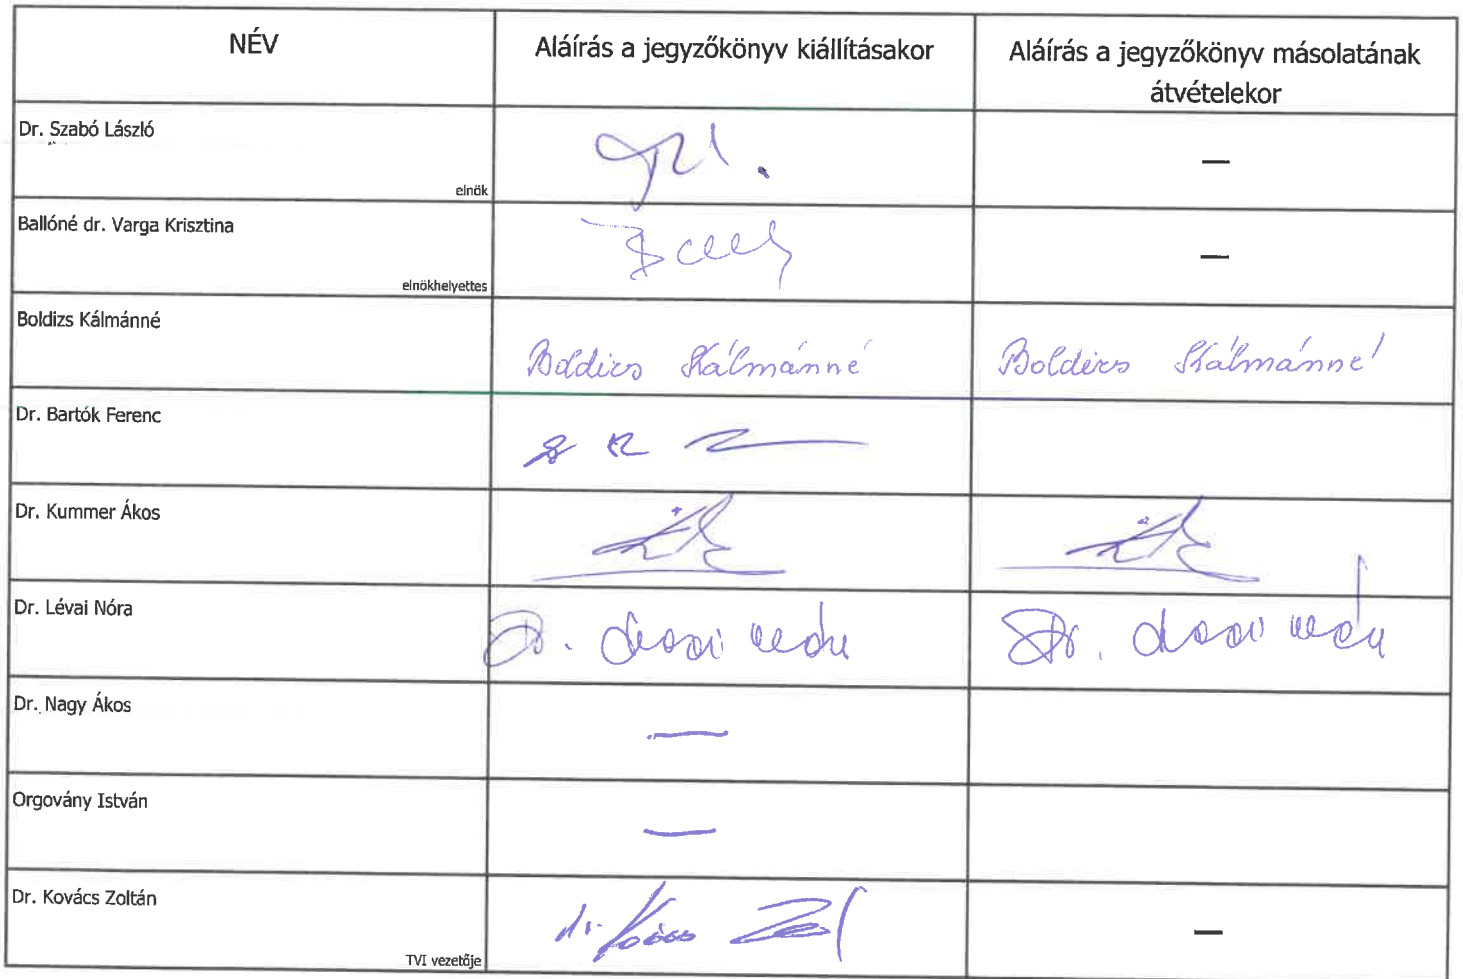 NÉV
Aláírás a jegyzőkönyv kiállításakor
Aláírás a jegyzőkönyv másolatának
átvételekor
Dr. Szabó László
—
elnök
Ballóné dr. Varga Krisztina
—
elnökhelyettes
Boldizs Kálmánné
Boldizs Kálmánné Boldizs Kálmánné
Dr. Bartók Ferenc
Dr. Kummer Ákos
Dr. Lévai Nóra
Dr. Lévai Nóra Dr. Lévai Nóra
Dr. Nagy Ákos
—
Orgovány István
—
Dr. Kovács Zoltán
dr. Kovács
—
TVI vezetője